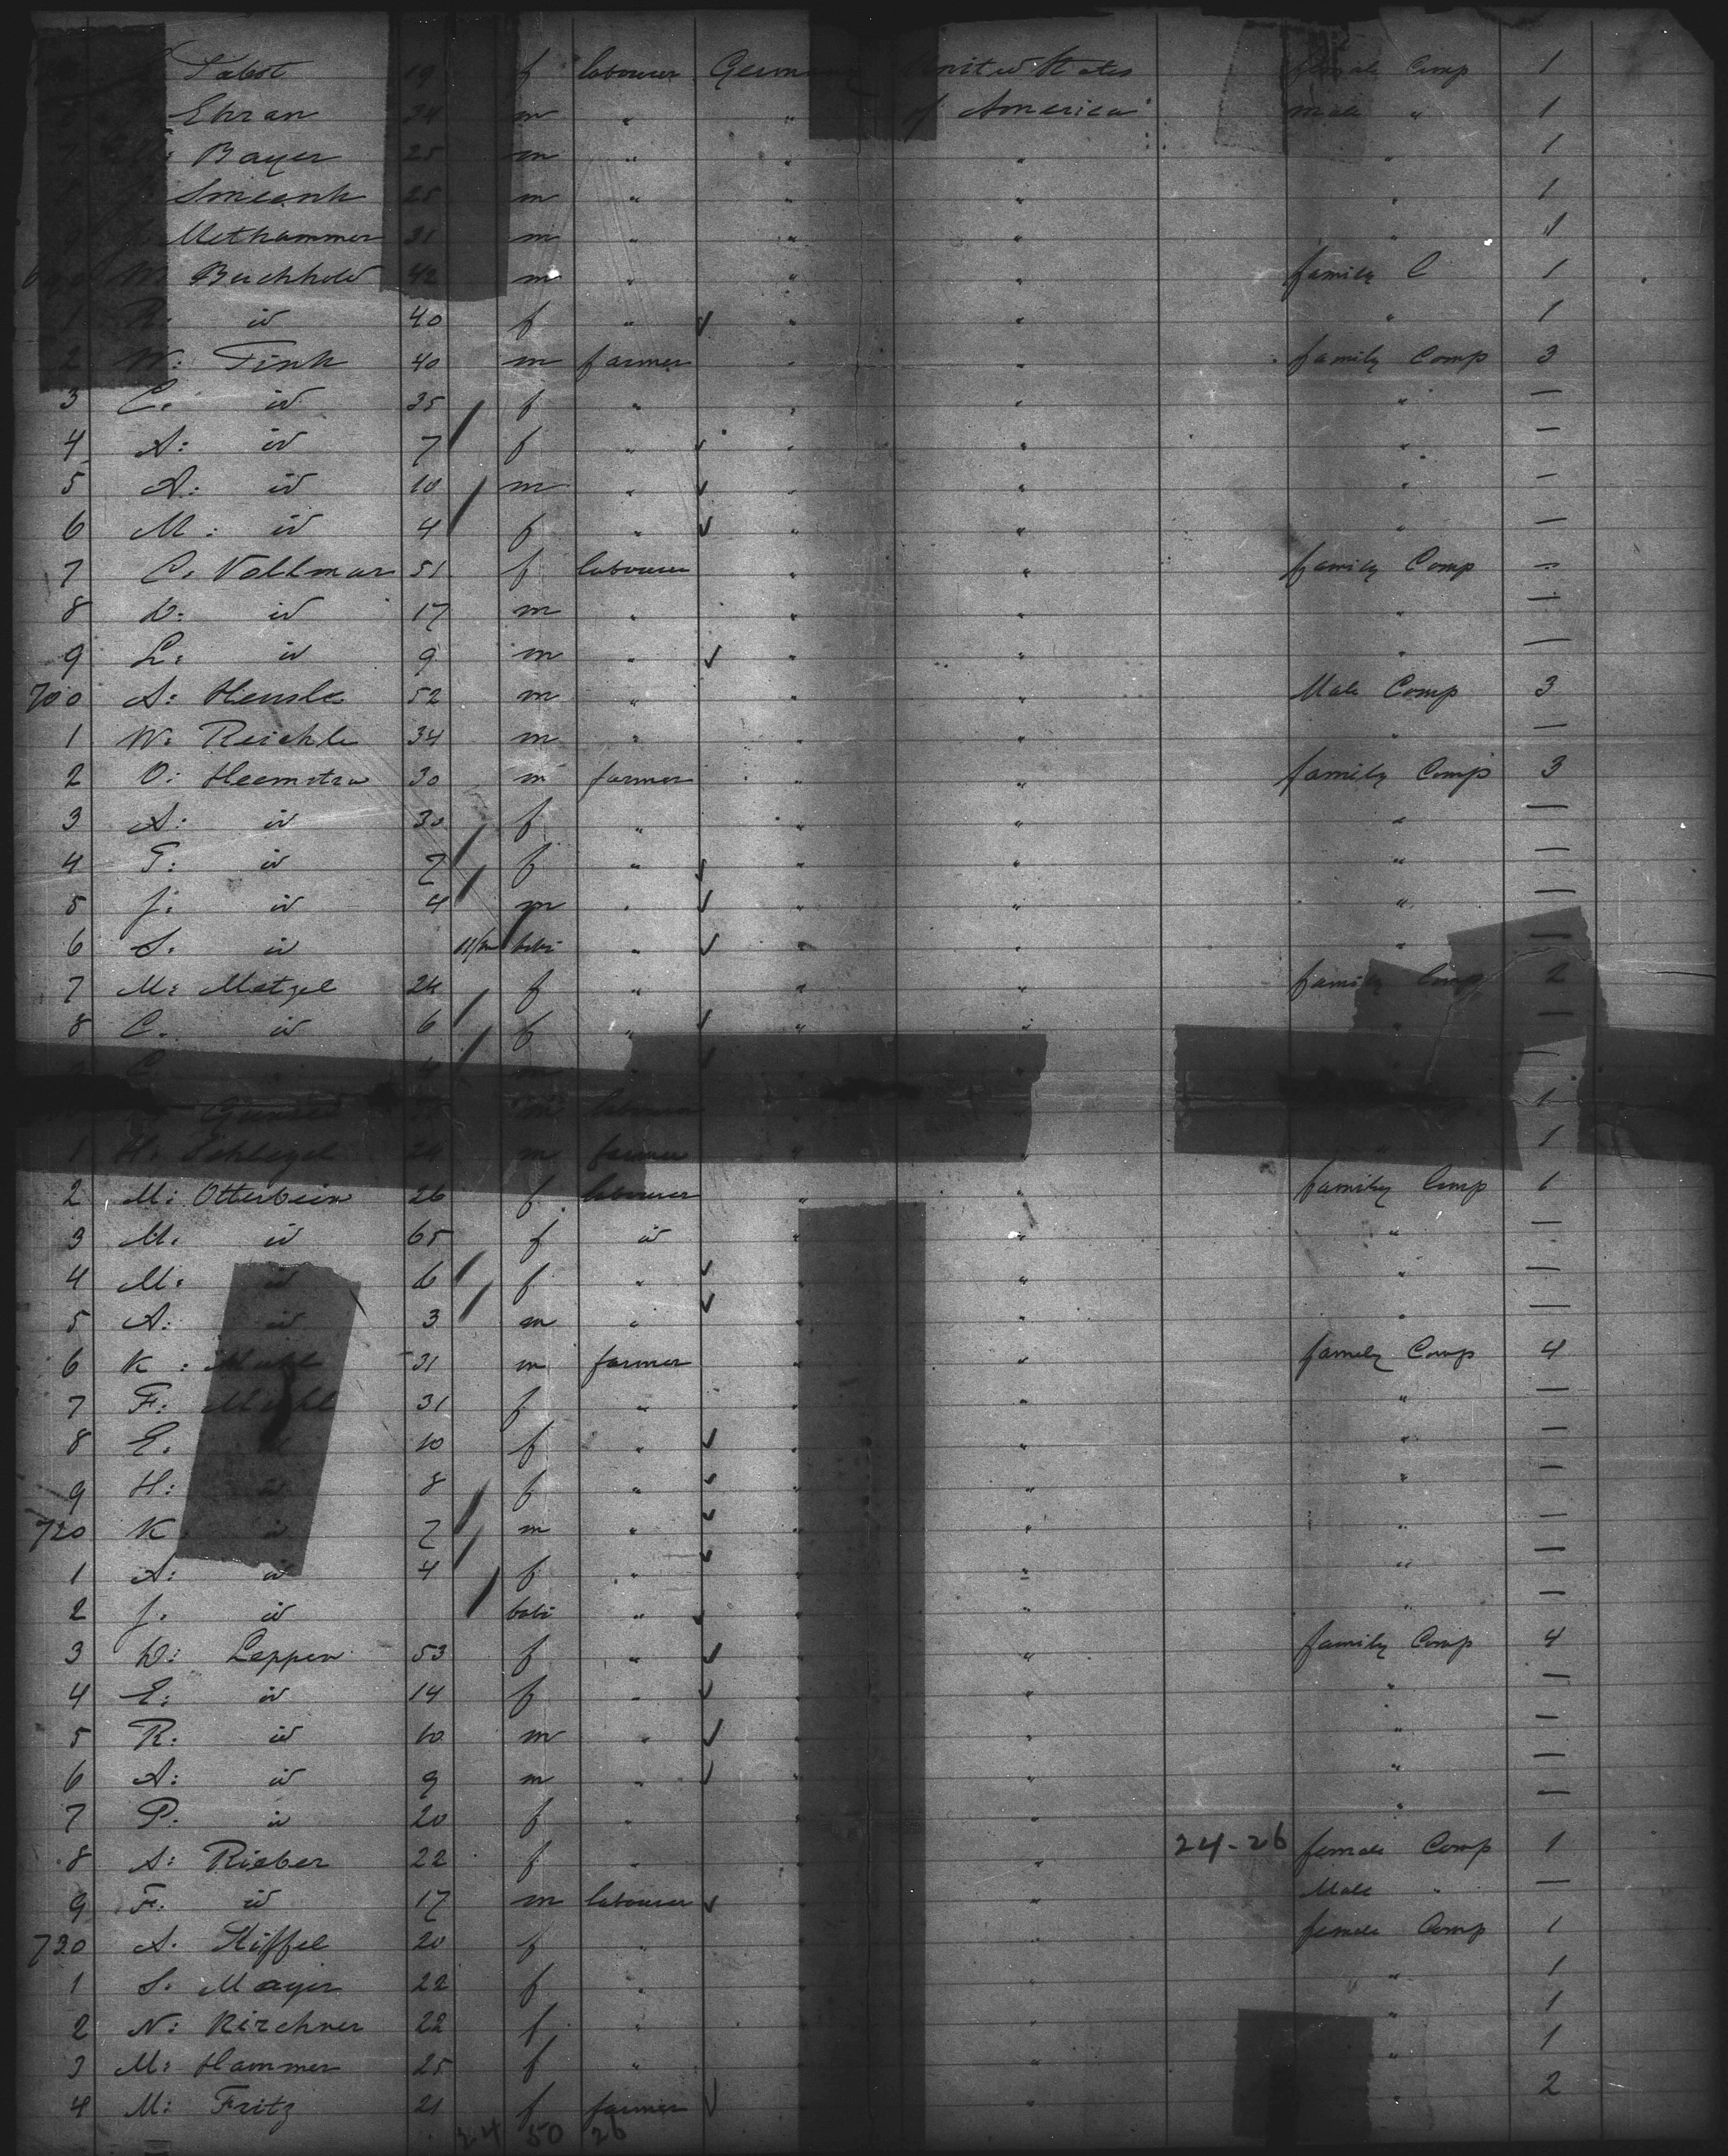 19 f labourer United States female Comp 1
Ehran 24 m " " of America male " 1
Bayer 25 m " " " " 1
Smeenk 25 m " " " " 1
Methammer 31 m " " " " 1
Buchhold 42 m " " " family C 1
1 id 40 f " ✓ " " " 1
2 W: Fink 40 m farmer " " family Comp 3
3 C. id 35 f " " " " —
4 A: id 7 / f " ✓ " " " —
5 A: id 10 m " ✓ " " " —
6 M: id 4 / f " ✓ " " " —
7 C. Vollmar 51 f labourer " " family Comp —
8 id 17 m " " " " —
9 L: id 9 m " ✓ " " " —
700 A: Hensle 52 m " " " Male Comp 3
1 W: Reichle 34 m " " " " —
2 O: Heemstra 30 m farmer " " family Comp 3
3 A: id 30 f " " " " —
4 T: id 7 / f " ✓ " " —
5 J: id 4 / m " ✓ " " " —
6 S. id 11/m / bebi " ✓ " " —
7 M: Metzel 24 f " " " family Comp 2
8 C. id 6 / f " ✓ " " " —
m —
m labourer 1
1 H. Schlegel 24 m farmer " " " 1
2 M: Otterbein 26 f labourer " " family Comp 1
3 M. id 65 f id " " " —
4 M: id 6 / f " ✓ " " —
5 A: id 3 / m " ✓ " " " —
6 K: 31 m farmer " " family Comp 4
7 F: 31 f " " " " —
8 E. 10 f " ✓ " " " —
9 H: id 8 f " ✓ " " —
720 K id 7 / m " ✓ " " —
1 A: id 4 / f " ✓ " " —
2 J. id / bebi " ✓ " " —
3 D: Leppen 53 f " ✓ " family Comp 4
4 E: id 14 f " ✓ " " —
5 R: id 10 m " ✓ " " —
6 A: id 9 m " ✓ " " —
7 P. id 20 f " " " —
8 A: Rieber 22 f " " 24-26 female Comp 1
9 F. id 17 m labourer ✓ " Male " —
730 A. Kiffel 20 f " " female Comp 1
1 S. Mayer 22 f " " " 1
2 N: Kirchner 22 f " " " 1
3 M: Hammer 25 f " " " 1
4 M: Fritz 21 f farmer ✓ " " 2
24 50 26